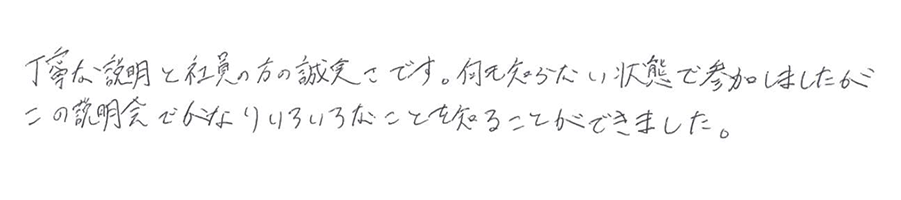 丁寧な説明と社員の方の誠実さです。何も知らない状態で参加しましたが
この説明会でかなりいろいろなことを知ることができました。